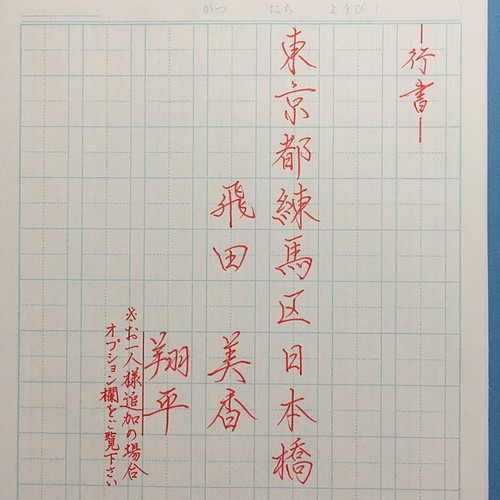 がつ にち ようび(
ー行書ー
東京都練馬区日本橋
飛田 美香
翔平
※お一人様追加の場合
オプション欄をご覧下さい